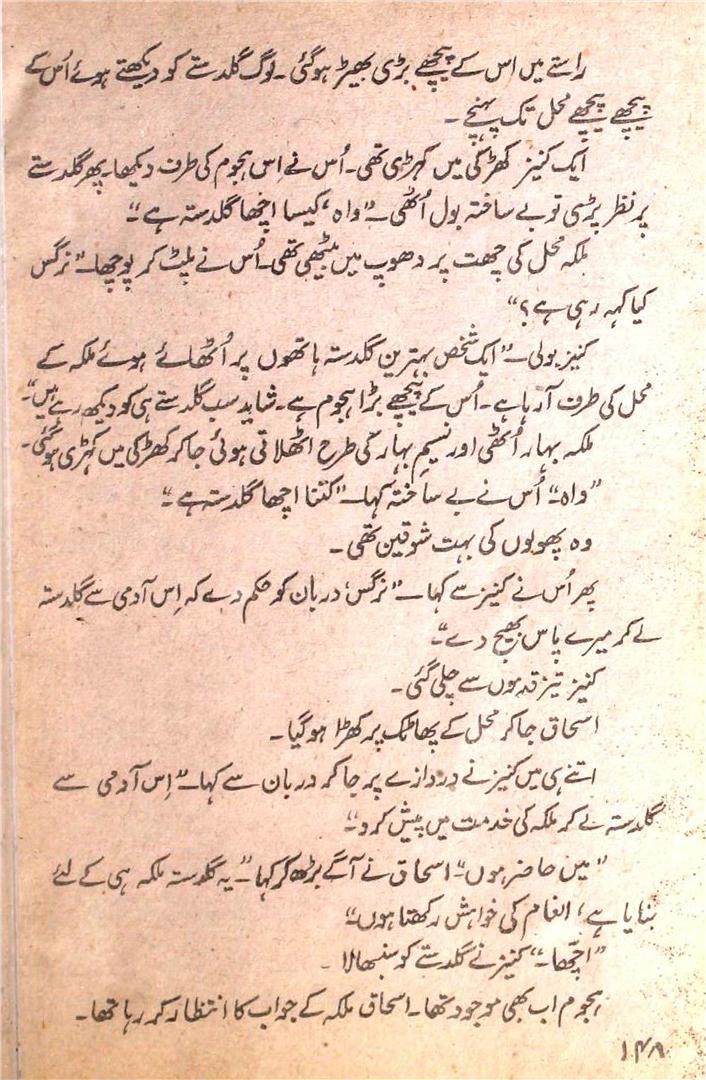 راستے میں اس کے پیچھے بڑی بھیڑ ہوگئی۔ لوگ گلدستے کو دیکھتے ہوئے اُس کے
پیچھے پیچھے محل تک پہنچے۔
ایک کنیز کھڑکی میں کھڑی تھی۔ اُس نے اِس ہجوم کی طرف دیکھا۔ پھر گلدستے
پر نظر پڑی تو بے ساختہ بول اُٹھی۔ ”واہ، کیسا اچھا گلدستہ ہے“۔
ملکہ محل کی چھت پر دھوپ میں بیٹھی تھی۔ اُس نے پلٹ کر پوچھا۔ ”نرگس
کیا کہہ رہی ہے؟“
کنیز بولی۔ ”ایک شخص بہترین گلدستہ ہاتھوں پر اُٹھائے ہوئے ملکہ کے
محل کی طرف آ رہا ہے۔ اُس کے پیچھے بڑا ہجوم ہے۔ شاید سب گلدستے ہی کو دیکھ رہے ہیں“۔
ملکہ بہار اُٹھی اور نسیمِ بہار کی طرح اٹھلاتی ہوئی جا کر کھڑکی میں کھڑی ہوگئی۔
”واہ“۔ اُس نے بے ساختہ کہا۔ ”کتنا اچھا گلدستہ ہے“۔
وہ پھولوں کی بہت شوقین تھی۔
پھر اُس نے کنیز سے کہا۔ ”نرگس، دربان کو حکم دے کہ اِس آدمی سے گلدستہ
لے کر میرے پاس بھیج دے“۔
کنیز تیز قدموں سے چلی گئی۔
اسحاق جا کر محل کے پھاٹک پر کھڑا ہوگیا۔
اتنے ہی میں کنیز نے دروازے پر جا کر دربان سے کہا۔ ”اِس آدمی سے
گلدستہ لے کر ملکہ کی خدمت میں پیش کر دو“۔
”میں حاضر ہوں“۔ اسحاق نے آگے بڑھ کر کہا۔ ”یہ گلدستہ ملکہ ہی کے لئے
بنایا ہے، انعام کی خواہش رکھتا ہوں“۔
”اچھّا۔“ کنیز نے گلدستے کو سنبھالا۔
ہجوم اب بھی موجود تھا۔ اسحاق ملکہ کے جواب کا انتظار کر رہا تھا۔
۱۴۸